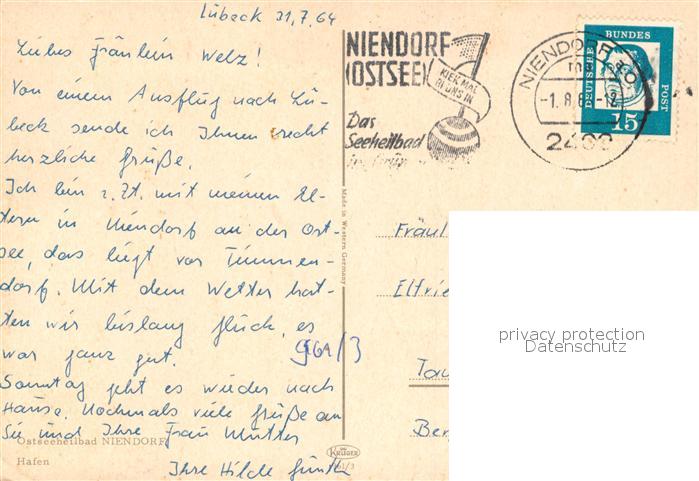 Lübeck 31.7.64
Liebes Fräulein Welz!
Von einem Ausflug nach Lü-
beck sende ich Ihnen recht
herzliche Grüße.
Ich bin z.Zt. mit meinen El-
tern in Niendorf an der Ost-
see, das liegt vor Timmen-
dorf. Mit dem Wetter hat-
ten wir bislang Glück, es
war ganz gut.
Sonntag geht es wieder nach
Hause. Nochmals viele Grüße an
Sie und Ihre Frau Mutter
Ihre Hilde
Ostseeheilbad NIENDORF
Hafen
961/3
Made in Western Germany
KRÜGER
61/3
NIENDORF
(OSTSEE)
KIEK MAL
IN UNS IN
Das
Seeheilbad
NIENDORF
-1.8.6 -12
BUNDES
DEUTSCHE
POST
15
Fräul
Elfrie
Tau
Ber
privacy protection
Datenschutz